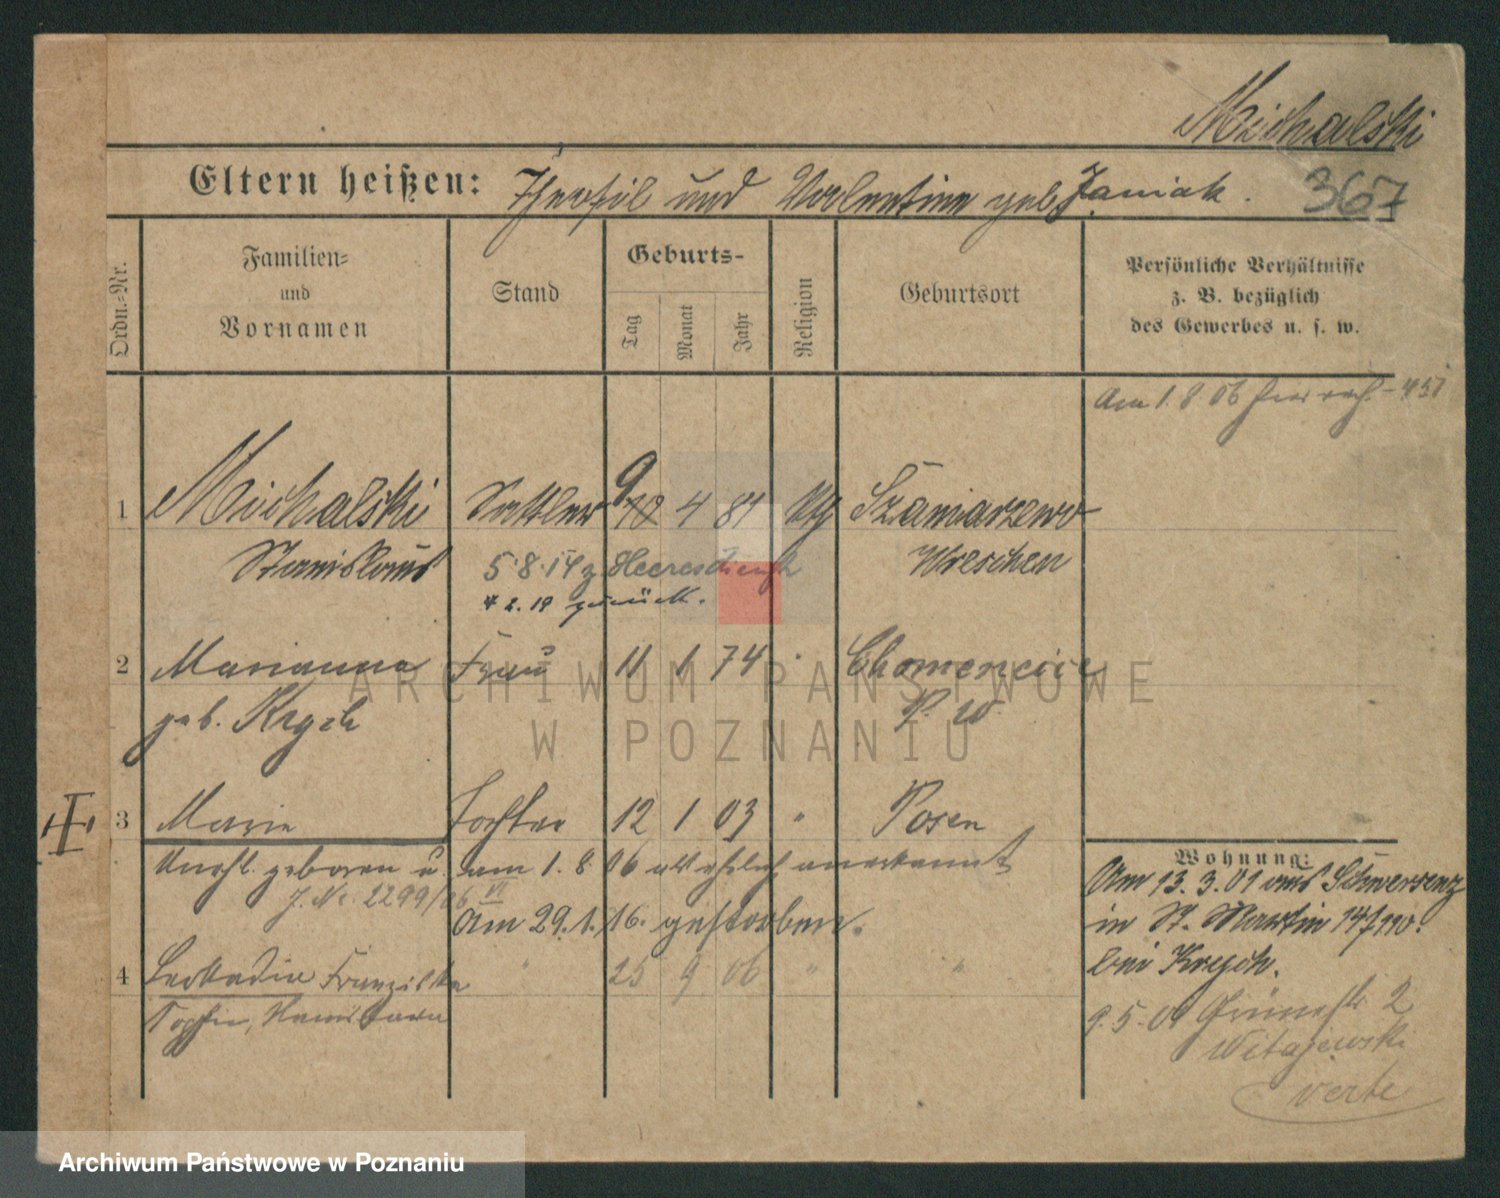 Michalski
Eltern heißen: Theofil und Valentine geb. Janiak.
367
Ordn.-Nr.
Familien-
und
Vornamen
Stand
Geburts-
Tag
Monat
Jahr
Religion
Geburtsort
Persönliche Verhältnisse
z. B. bezüglich
des Gewerbes u. s. w.
Am 1.8.06
1 Michalski Sattler 9 10 4 81 Szamarzewo
Stanislaus 5.8.14 z. Heeresdienst Wreschen
zurück.
2 Marianna Frau 11 1 74
geb. P. W.
3 Marie Tochter 12 1 03 " Posen
Unehl. geboren u. am 1.8.06 als ehelich anerkannt
J. Nr. 2299/06 VI
Am 29.1.16. gestorben.
4 Leokadia Franziska " 25 9 06 " "
Sophie, Stanislawa
Wohnung:
Am 13.3.01 aus Schwersenz
in St. Martin
bei
9.5. Grünestr 2
Witajewski
verte
ARCHIWUM PAŃSTWOWE
W POZNANIU
Archiwum Państwowe w Poznaniu